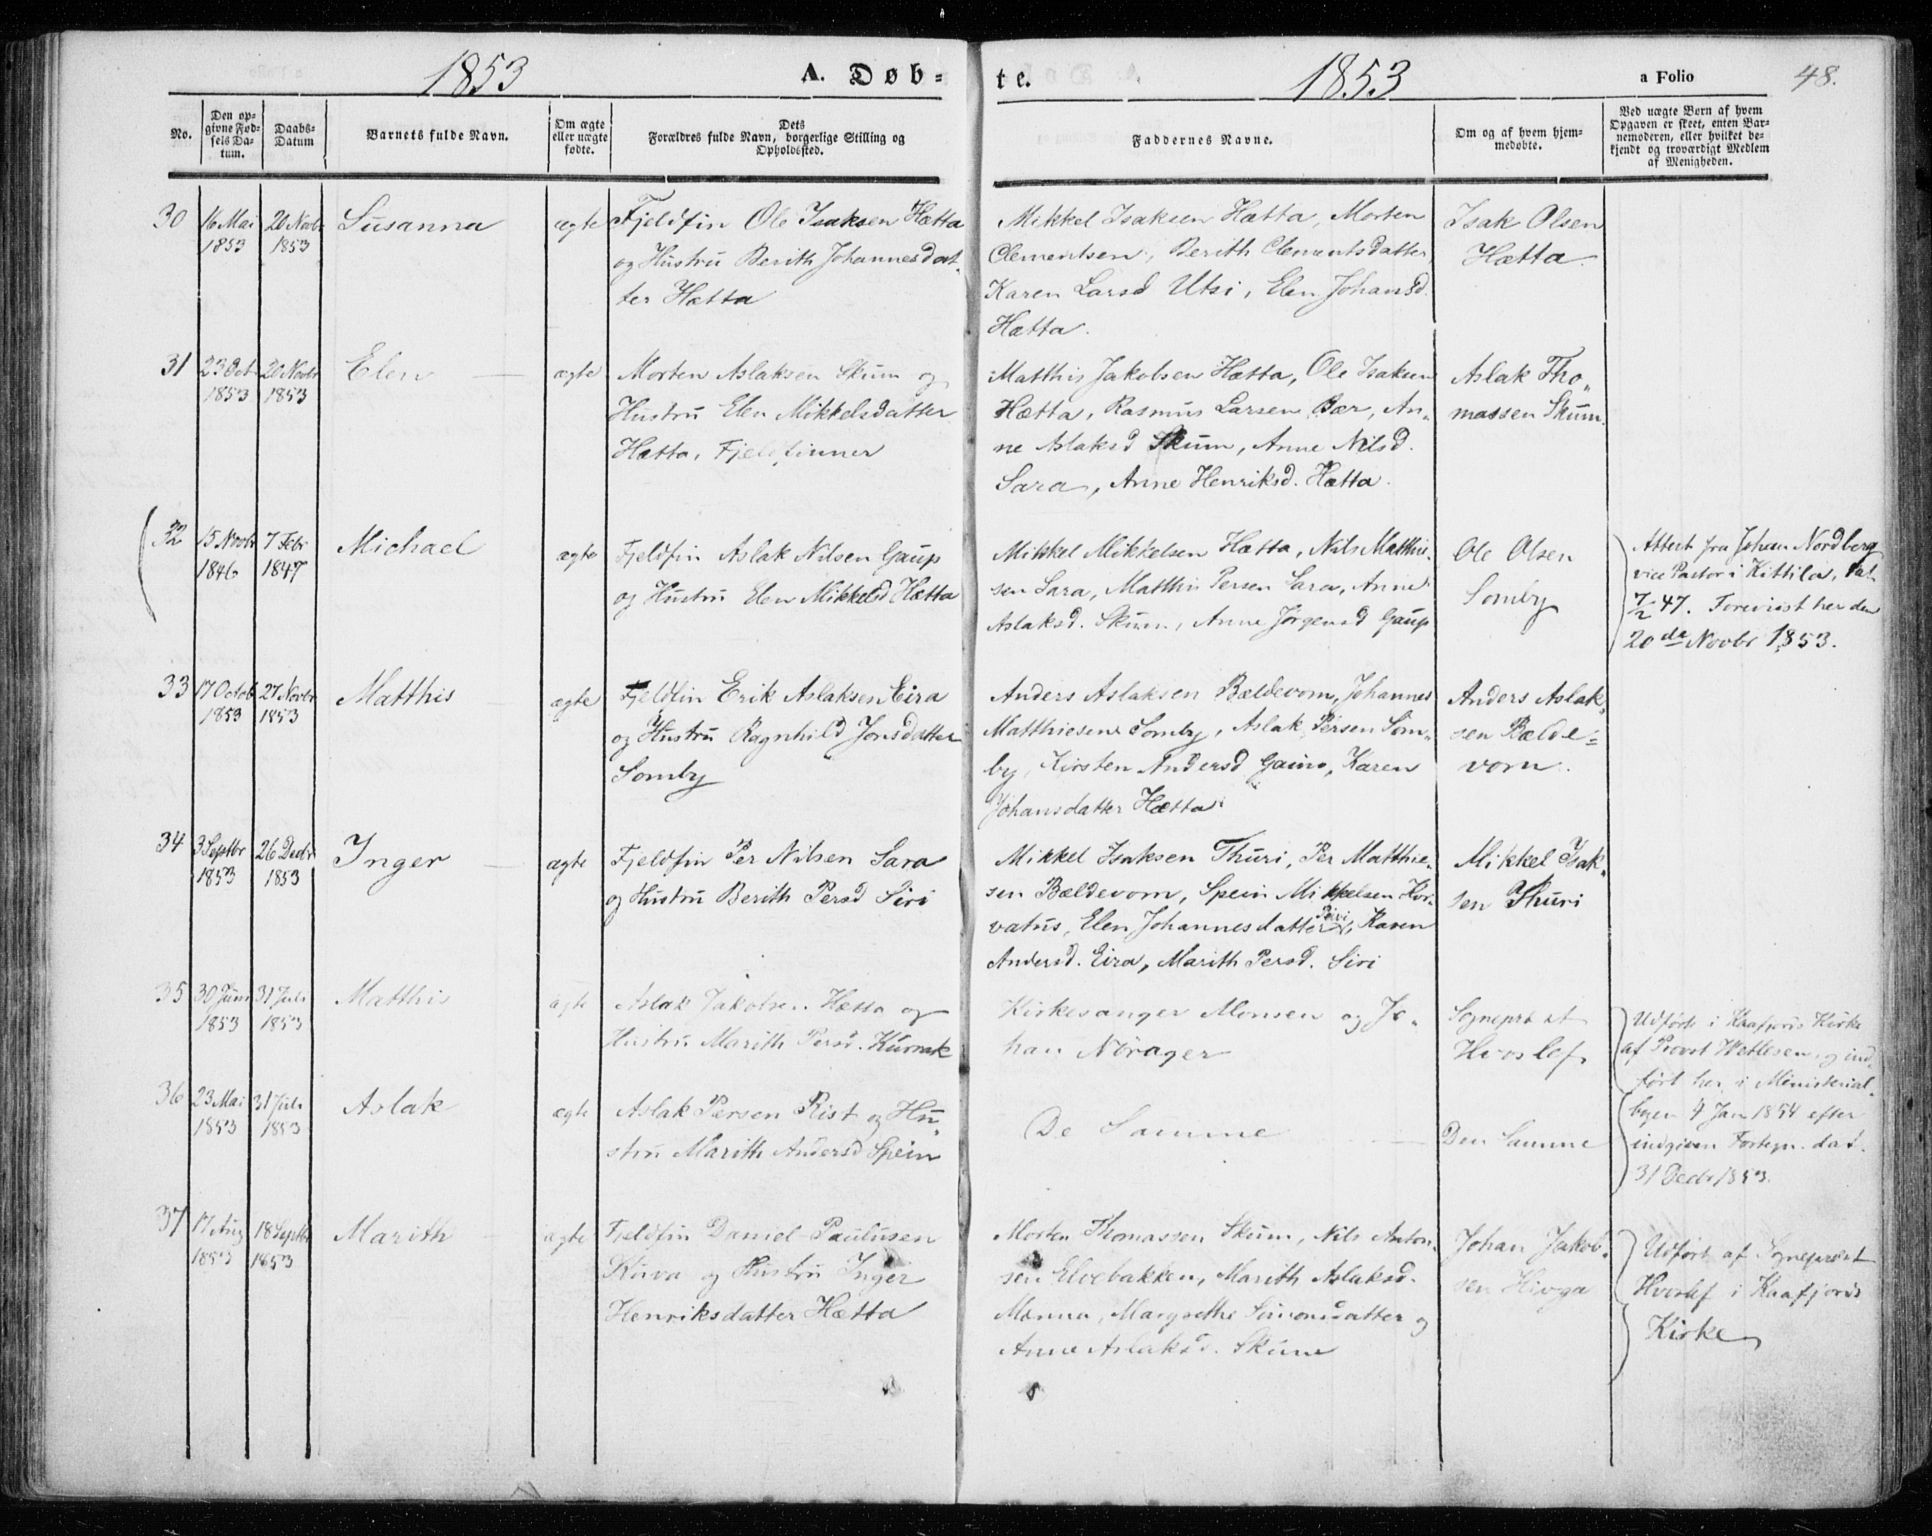 1853 A. Døb= te. 1853 a Folio 48.
No.
Den op-
givne Fød-
sels Da-
tum.
Daabs-
Datum
Barnets fulde Navn.
Om ægte
eller uægte
fødte.
Dets
Forældres fulde Navn, borgerlige Stilling og
Opholdssted.
Faddernes Navne.
Om og af hvem hjem-
medøbte.
Ved uægte Børn af hvem
Opgaven er skeet, enten Bar-
nemoderen, eller hvilket be-
kjendt og troværdigt Medlem
af Menigheden.
30
16 Mai
1853
20 Novbr
1853
Susanna
ægte
Fjeldfin Ole Isaksen Hætta
og Hustru Berith Johannesdat-
ter Hætta
Mikkel Isaksen Hætta, Morten
Clementsen, Berith Clementsdatter,
Karen Larsd Utsi, Elen Johansd.
Hætta.
Isak Olsen
Hætta.
31
23 Oct
1853
20 Novbr
1853
Elen
ægte
Morten Aslaksen Skum og
Hustru Elen Mikkelsdatter
Hætta, Fjeldfinner
Matthis Jakobsen Hætta, Ole Isaksen
Hætta, Rasmus Larsen Bær, An-
ne Aslaksd Skum, Anne Nilsd.
Sara, Anne Henriksd. Hætta.
Aslak Tho-
massen Skum.
32
15 Novbr
1846
7 Febr
1847
Michael
ægte
Fjeldfin Aslak Nilsen Gaup
og Hustru Elen Mikkelsd Hætta
Mikkel Mikkelsen Hætta, Nils Matthi-
sen Sara, Matthis Persen Sara, Anne
Aslaksd. Skum, Anne Jørgensd Gaup
Ole Olsen
Somby
Attest fra Johan Nordberg
vice Pastor i Kittila, dat.
7/2 47. Foreviist her den
20de Novbr 1853.
33
17 Octob
1853
27 Novbr
1853
Matthis
ægte
Fjeldfin Erik Aslaksen Eira
og Hustru Ragnhild Jonsdatter
Somby
Anders Aslaksen Bældevom, Johannes
Matthiesen Somby, Aslak Persen Som-
by, Kirsten Andersd Gaino, Karen
Johansdatter Hætta
Anders Aslak-
sen Bælde=
vom.
34
3 Septbr
1853
26 Decbr
1853
Inger
ægte
Fjeldfin Per Nilsen Sara
og Hustru Berith Persd Siri
Mikkel Isaksen Thuri, Per Matthie-
sen Bældevom, Spein Mikkelsen Hor-
vatus, Elen Johannesdatter Päivi, Karen
Andersd. Eira, Marith Persd. Siri
Mikkel Isak-
sen Thuri
35
30 Juni
1853
31 Juli
1853
Matthis
ægte
Aslak Jakobsen Hætta og
Hustru Marith Persd. Kurrak
Kirkesanger Monsen og Jo-
han Nørager
Sognepræst
Hvoslef
Udført i Kaafjords Kirke
af Provst Wetlesen, og ind-
ført her i Ministerial-
bogen 4 Jan 1854 efter
indgiven Fortegn. dat.
31 Decbr 1853.
36
23 Mai
1853
31 Juli
1853
Aslak
ægte
Aslak Persen Rist og Hu-
stru Marith Andersd Spein
De Samme
Den Samme
37
17 Aug
1853
18 Septbr
1853
Marith
ægte
Fjeldfin Daniel Paulusen
Kuva og Hustru Inger
Henriksdatter Hætta
Morten Thomassen Skum, Nils Anton-
sen Elvebakken, Marith Aslaksd.
Menna, Margrethe Simonsdatter og
Anne Aslaksd. Skum
Johan Jakob-
sen Hivga
Udført af Sognepræst
Hvoslef i Kaafjords
Kirke